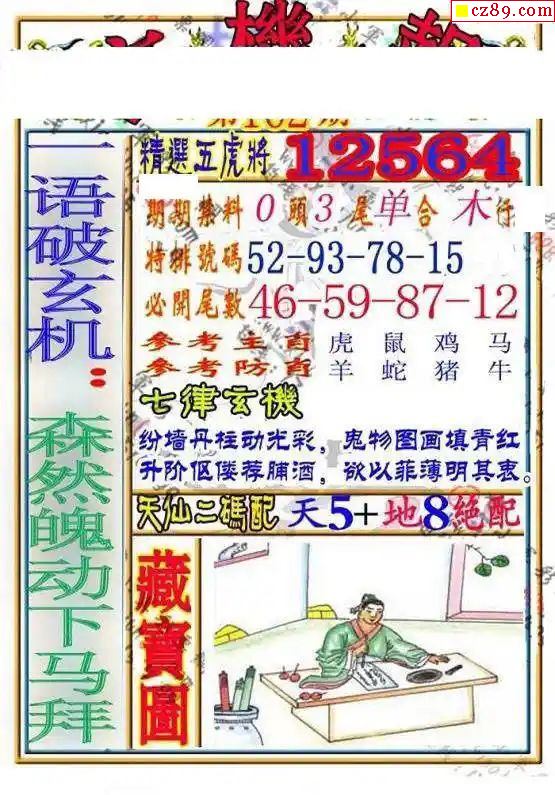 cz89.com
一语破玄机：森然魄动下马拜
精選五虎將 12564
期期禁料 0頭3尾单合木行
特排號碼 52-93-78-15
必開尾數 46-59-87-12
参考主肖 虎 鼠 鸡 马
参考防肖 羊 蛇 猪 牛
七律玄機
纷墙丹柱动光彩，鬼物图画填青红
升阶伛偻荐脯酒，欲以菲薄明其衷。
天仙二碼配 天5+地8絕配
藏寶圖